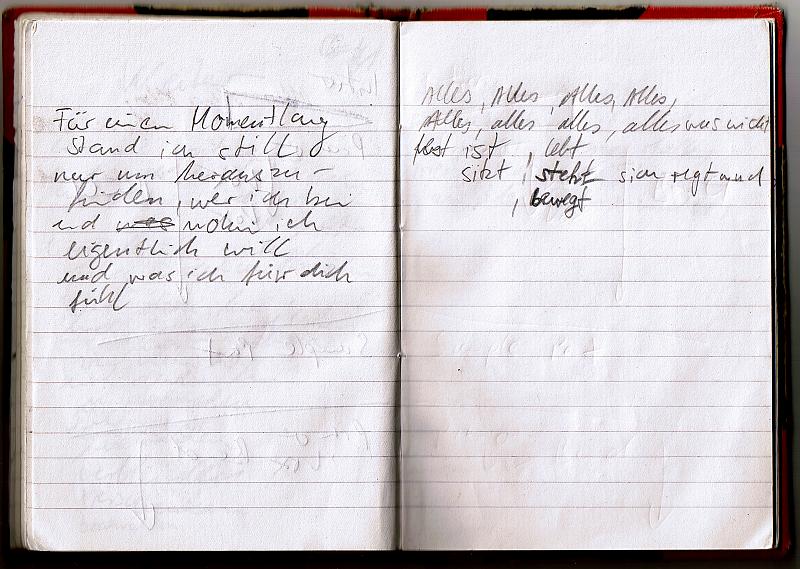 Für einen Moment lang
Stand ich still
nur um herauszu-
finden, wer ich bin
und was wohin ich
eigentlich will
und was ich für dich
fühl
Alles, Alles, Alles, Alles,
Alles, alles alles, alles was nicht
ist, lebt
sitzt, steht sich regt und
, bewegt
Sample Part